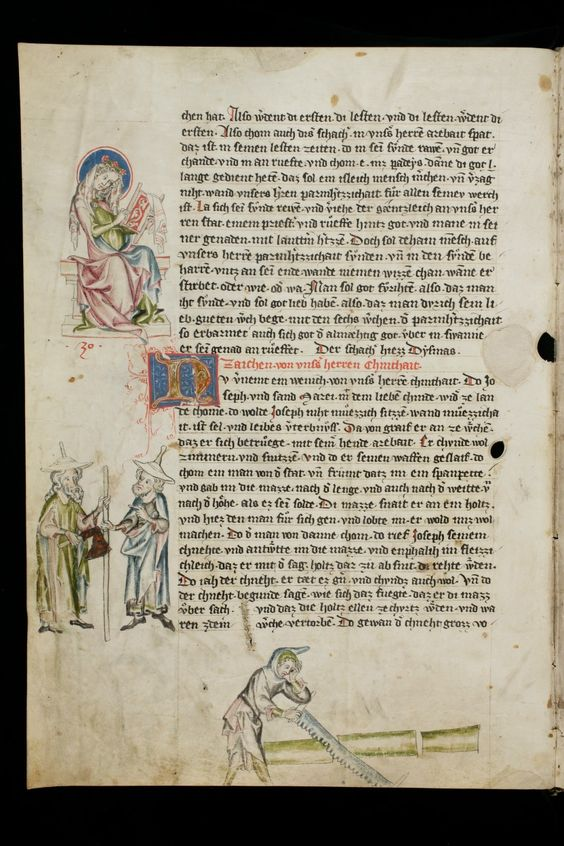 chen hat. Also w͛dent di ersten. di lesten. vnd di lesten. w͛dent di
ersten. Also chom auch diser schach. in vnsers herre arebait spat.
daz ist. in seinen lesten zeiten. do in sei synde rawe. vn got er
chande. vnd in an rueffte. vnd chom. e. inz padeys. danne di got l
lange gedient hete. daz sol ein isleich mensch
niht. wand vnsers h͛ren parmh͛tzzichait. fur allen seinen werch
ist. La sich sein synde rewe. vnd an vnsern her
ren stat. einem priest͛. vnd rueffe hintz got. vnd mane in sei
ner genaden. mit lautt͛m h͛tzze. Doch sol dehain mesch. auf
vnsers herre parmh͛tzzichait synden. vn in den synde be
harre. vntz an sei ende. wande niemen wizze chan. wane er
stirbet. oder wie. od͛ wa. Man sol got furihte. also. daz man
iht synde. vnd sol got lieb habe. also. daz man durch sein li
eb. gueten w͛ch bege. mit den sechs w͛chen. d͛ parmh͛tzzichait
so erbarmet auch sich got d͛ almæhtig got. vber in. swanne
er sei genad an rueffet. Der schach͛ hiezz Dysmas.
.zo.
Zaichen. von vns͛s herren Chinthait.
Nv v͛nemt ein wenich. von vns͛s herre chinthait. Do Jo
seph. vnd sand Marei. mit dem liebe chinde. wid͛ ze lan
de chome. do wolde Joseph niht muezzich sitzze. wand muezzicha
it. ist sel. vnd leibes v͛terbnuss. Da von graif er an ze w͛che.
daz er sich betruege. mit sein hende arebait. Er chynde wol
zimmern. vnd snitzze. vnd do er seinen waffen geslaif. do
chom ein man von d͛ stat. vn frumt datz im ein spanpette.
vnd gab im die mazze. nach d͛ lenge. vnd auch nach d͛ weitte. vn
nach d͛ hohe. als ez sei solte. Di mazze. snait er an ein holtz.
vnd hiez den man fur sich gen. vnd lobte im. er wold imz wol
machen. Do d͛ man von danne chom. do rief Joseph seinem
chnehte. vnd antw͛tte im die mazze. vnd enphalih im fleizz
chleich. daz er mit d͛ sag. holtz dar zu ab snit. di rehte w͛den.
Do iah der chneht. er tæt ez gn. vnd chyndz auch wol. Vn do
der chneht. begunde sage. wie sich daz fuegte. daz er di mazz
vber sach. vnd daz die holtz ellen ze churtz w͛den. vnd wa
ren zdem w͛che. vertorben. Do gewan d͛ chneht grozz vo